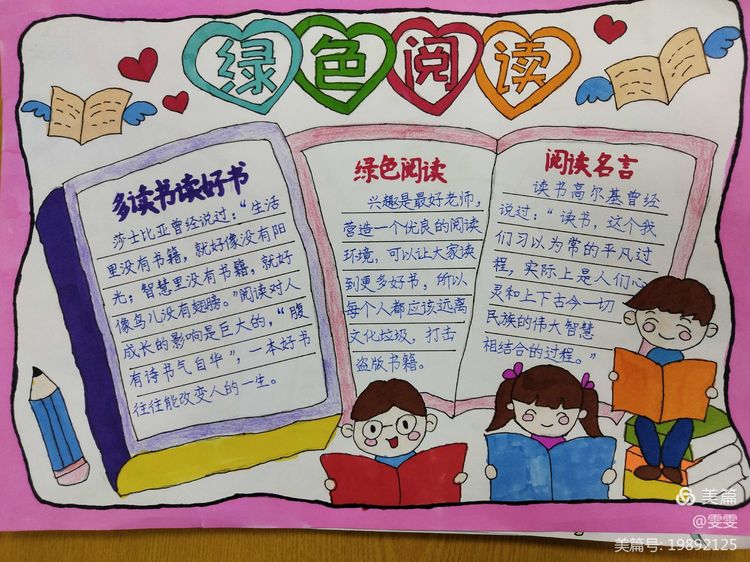 绿色阅读
多读书读好书
莎士比亚曾经说过："生活
里没有书籍，就好像没有阳
光；智慧里没有书籍，就好
像鸟儿没有翅膀。"阅读对人
成长的影响是巨大的，"腹
有诗书气自华"，一本好书
往往能改变人的一生。
绿色阅读
兴趣是最好老师，
营造一个优良的阅读
环境，可以让大家读
到更多好书，所以
每个人都应该远离
文化垃圾，打击
盗版书籍。
阅读名言
读书高尔基曾经
说过："读书，这个我
们习以为常的平凡过
程，实际上是人们心
灵和上下古今一切
民族的伟大智慧
相结合的过程。"
美篇
@雯雯
美篇号: 19892125